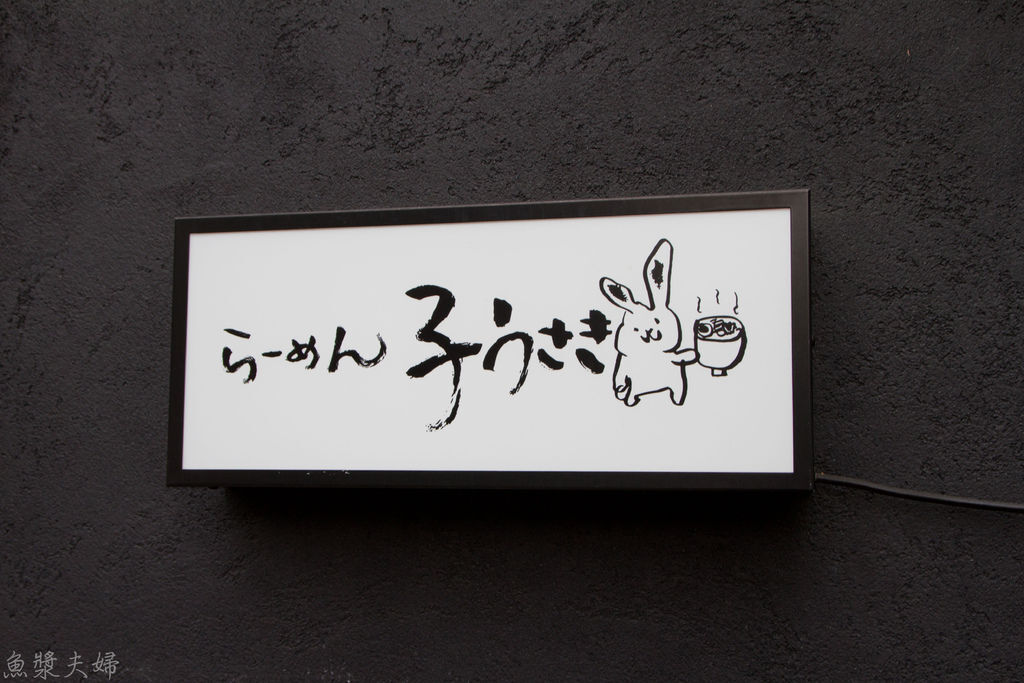 らーめん 子うさき
魚漿夫婦